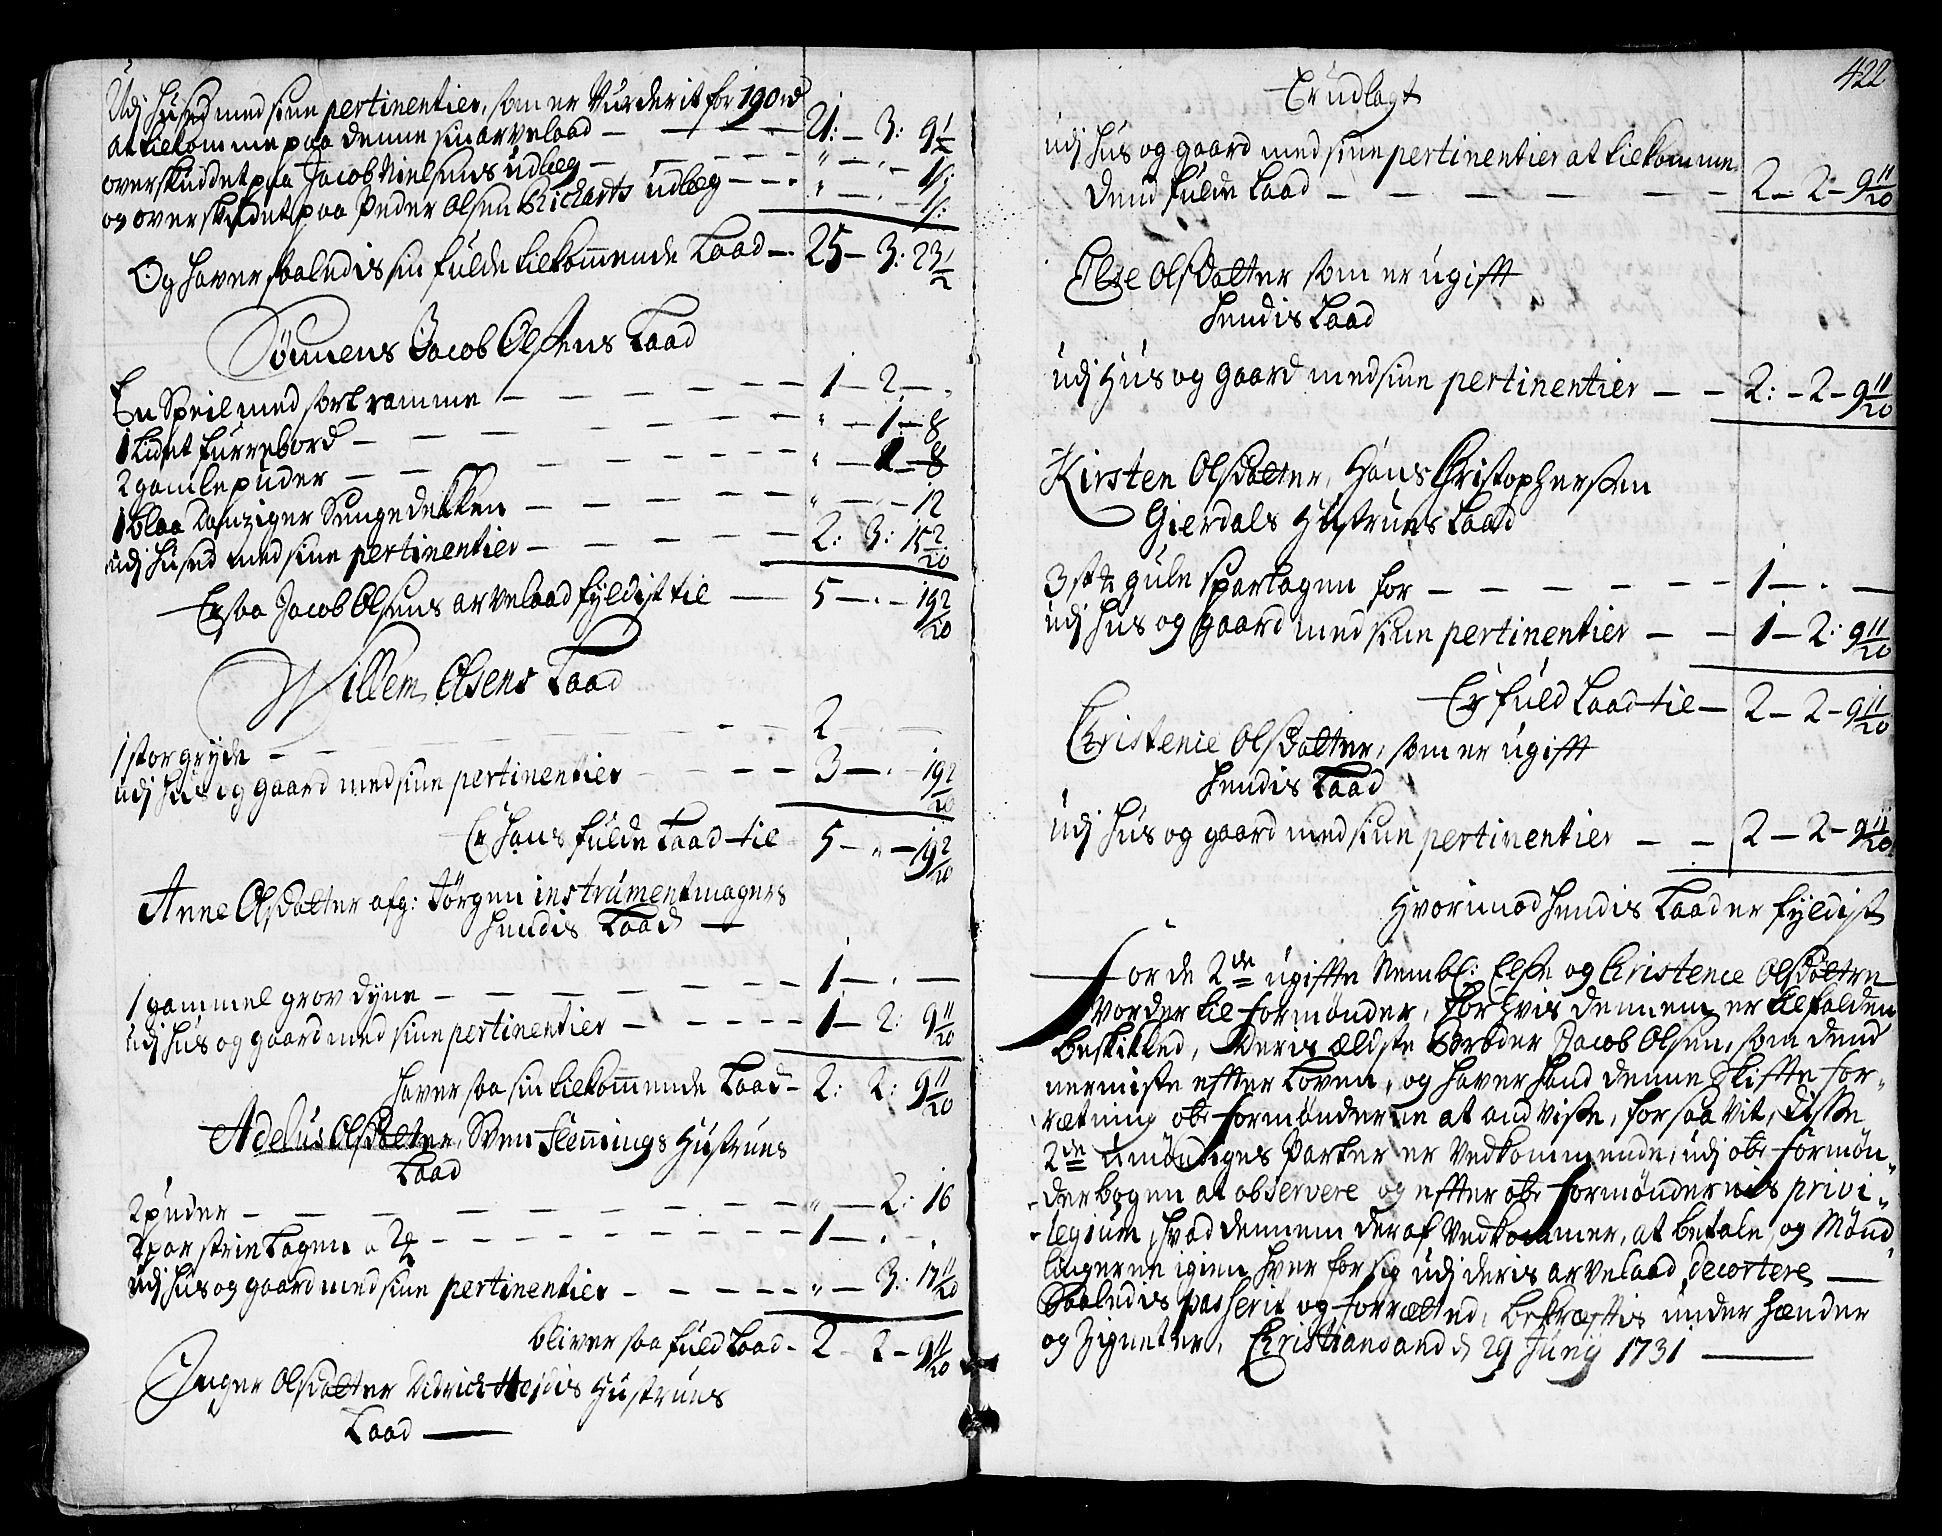 Udj Hused med sine pertinentier, som er Vurderit for 190 rd
at tilkomme paa denne sin arvelaad — — — — 21: — 3: 9 1/2
overskuddet paa Jacob Nielsens udleg — — — — „ — . — 1/:
og overskudet paa Peder Olsen Richarts udleg — — — „ — . — 1/:
Og haver saaledis sin fulde tilkommende Laad — 25 — 3: 23 1/2
Sönnens Jacob Olsens Laad
En Speil med sort ramme — — — — 1 — 2 — „
1 Lidet furrebord — — — — „ — 1 — 8
2 gamle puder — — — — „ — 1 — 8
1 blaa Danziger Sengedekken — — — — „ — . — 12
udj Hused med sine pertinentier — — — — 2: 3: 15 2/20
Er saa Jacob Olsens arvelaad fyldist til — 5 — . — 19 2/20
Willem Olsens Laad
1 stor gryde — — — — 2 — . —
udj Hus og gaard med sine pertinentier — — — — 3 — . — 19 2/20
Er hans fulde Laad til 5 — „ — 19 2/20
Anne Olsdatter afg: Jörgen instrumentmagers
Hendis Laad —
1 gammel grov dyne — — — — 1 — . —
udj Hus og gaard med sine pertinentier — — — — 1 — 2: 9 11/20
Haver saa sin tilkommende Laad — 2: 2: 9 11/20
Adelus Olsdatter, Sven Flemmings Hustrues
Laad
2 puder — — — — „ — 2: 16
2 par strie Lagen a 2 — — — — 1 — . — .
udj Hus og gaard med sine pertinentier — — — — „ — 3: 17 11/20
bliver saa fuld Laad — 2 — 2 — 9 11/20
Inger Olsdatter Didrich Heidis Hustrues
Laad —
422
Er udlagt
udj Hus og gaard med sine pertinentier at tilkomme
dend fulde Laad — — — — 2 — 2 — 9 11/20
Else Olsdatter som er ugifft
Hendis Laad
udj Hus og gaard med sine pertinentier — — 2: — 2 — 9 11/20
Kirsten Olsdatter, Hans Christophersen
Gierdals Hustrues Laad
3 st: gule sparlagen for — — — — 1 — . —
udj Hus og gaard med sine pertinentier — — 1 — 2: 9 11/20
Er fuld Laad til — 2 — 2 — 9 11/20
Christence Olsdatter, som er ugifft
Hendis Laad
udj Hus og gaard med sine pertinentier — — 2 — 2 — 9 11/20
Hvorimod hendis Laad er fyldist
For de 2de ugiffte Nembl: Else og Christence Olsdøttre
Vorder til Formønder, for hvis dennem er tilfalden
beskikked, Deris ældste Broder Jacob Olsen, som dend
nermiste efter Loven, og haver hand denne Skiffte for-
rætning obr Formønderne at andvise, for saa vit, disse
2de umøndiges Parter er Vedkommende, udj obr Formøn-
derbogen at observere og effter obr Formøndernis privi-
legium, hvad dennem deraf Vedkommer, at betale, og Mønd
lingerne igien hver for sig udj deris arvelaad decortere —
Saaledis passerit og forrætted, bekræfftis under hænder
og Zigneter, Christiansand d 29 Junij 1731 —